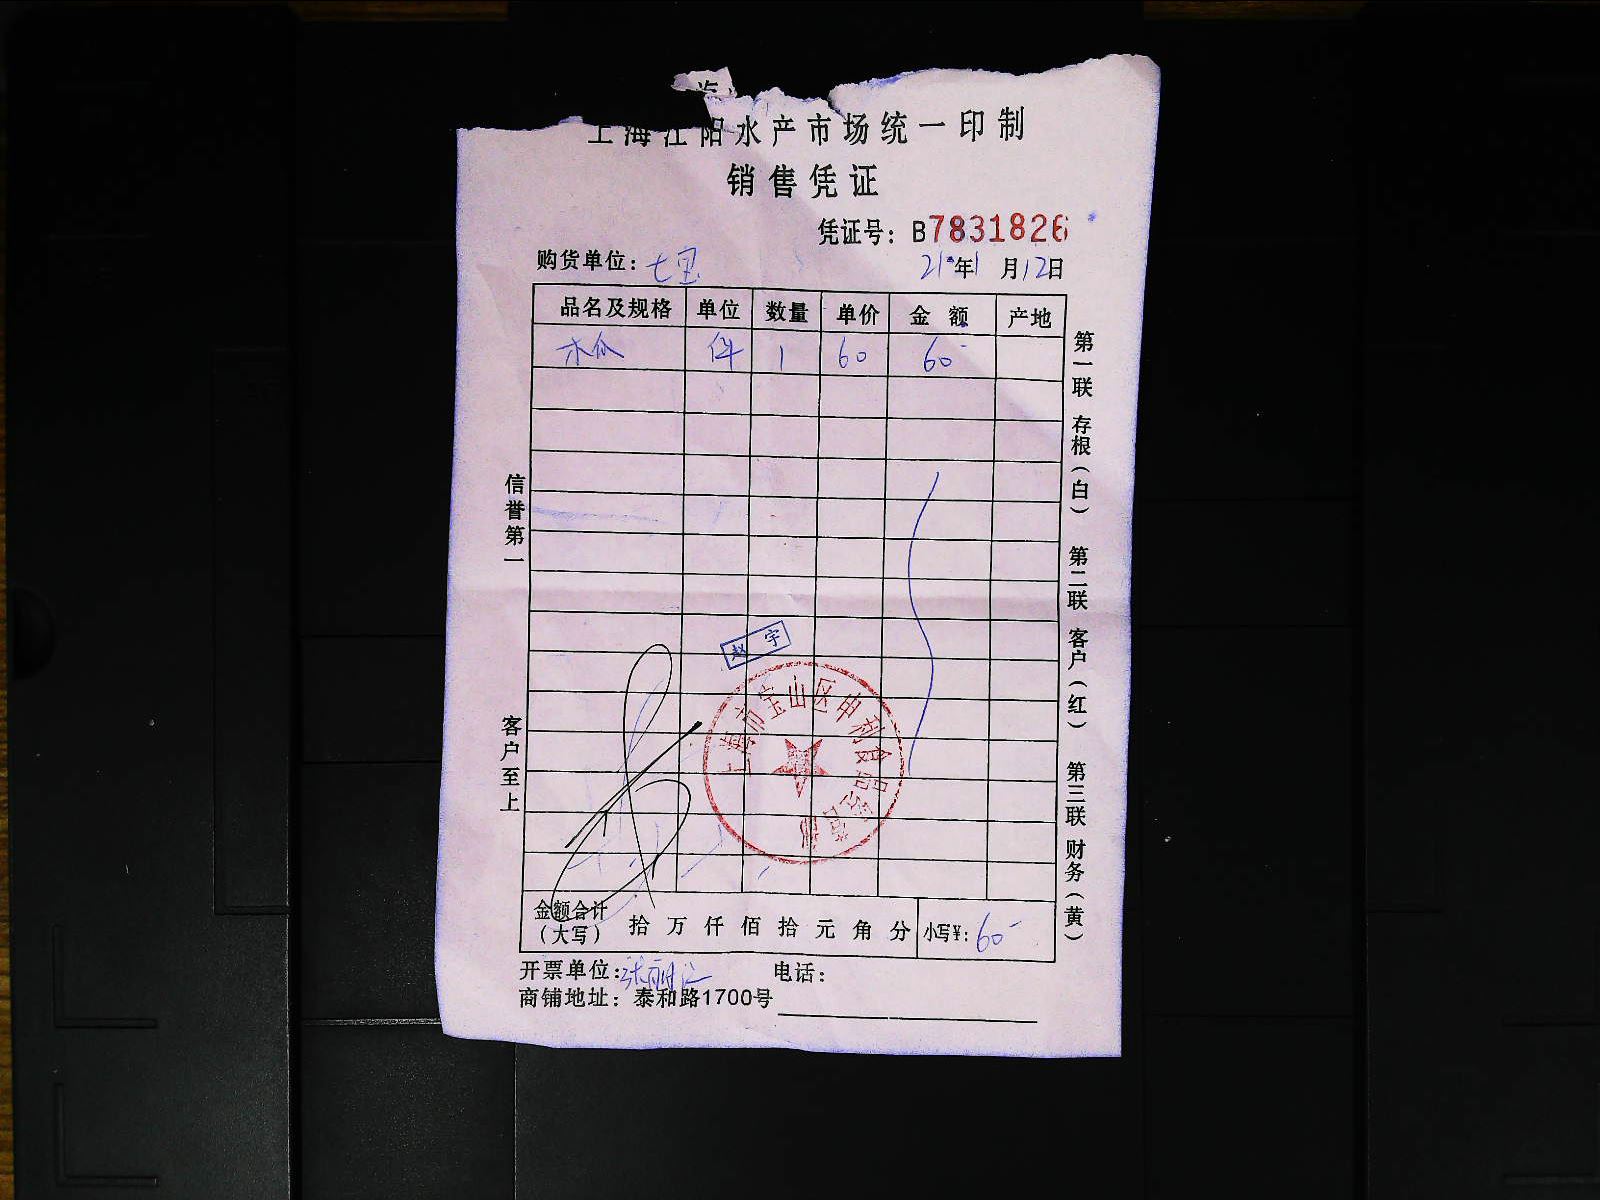 海
上海江阳水产市场统一印制
销售凭证
凭证号：B7831826
购货单位：七宝 21年1月12日
品名及规格 单位 数量 单价 金额 产地
木瓜 件 1 60 60-
信誉第一
客户至上
第一联 存根（白） 第二联 客户（红） 第三联 财务（黄）
赵宇
上海市宝山区申利食品经营部
金额合计（大写） 拾 万 仟 佰 拾 元 角 分 小写¥：60-
开票单位： 电话：
商铺地址：泰和路1700号